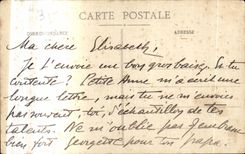 CARTE POSTALE
CORRESPONDANCE
ADRESSE
Ma chère Elisabeth,
Je t'envoie un bon gros baiser. Es-tu
contente ? Petite Anne m'a écrit une
longue lettre, mais tu ne m'envoies
pas souvent, toi, d'échantillon de tes
talents. Ne m'oublie pas. J'embrasse
bien fort Georgette pour ton papa.